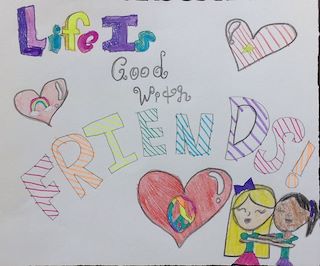 Life Is
Good
With
FRIENDS!